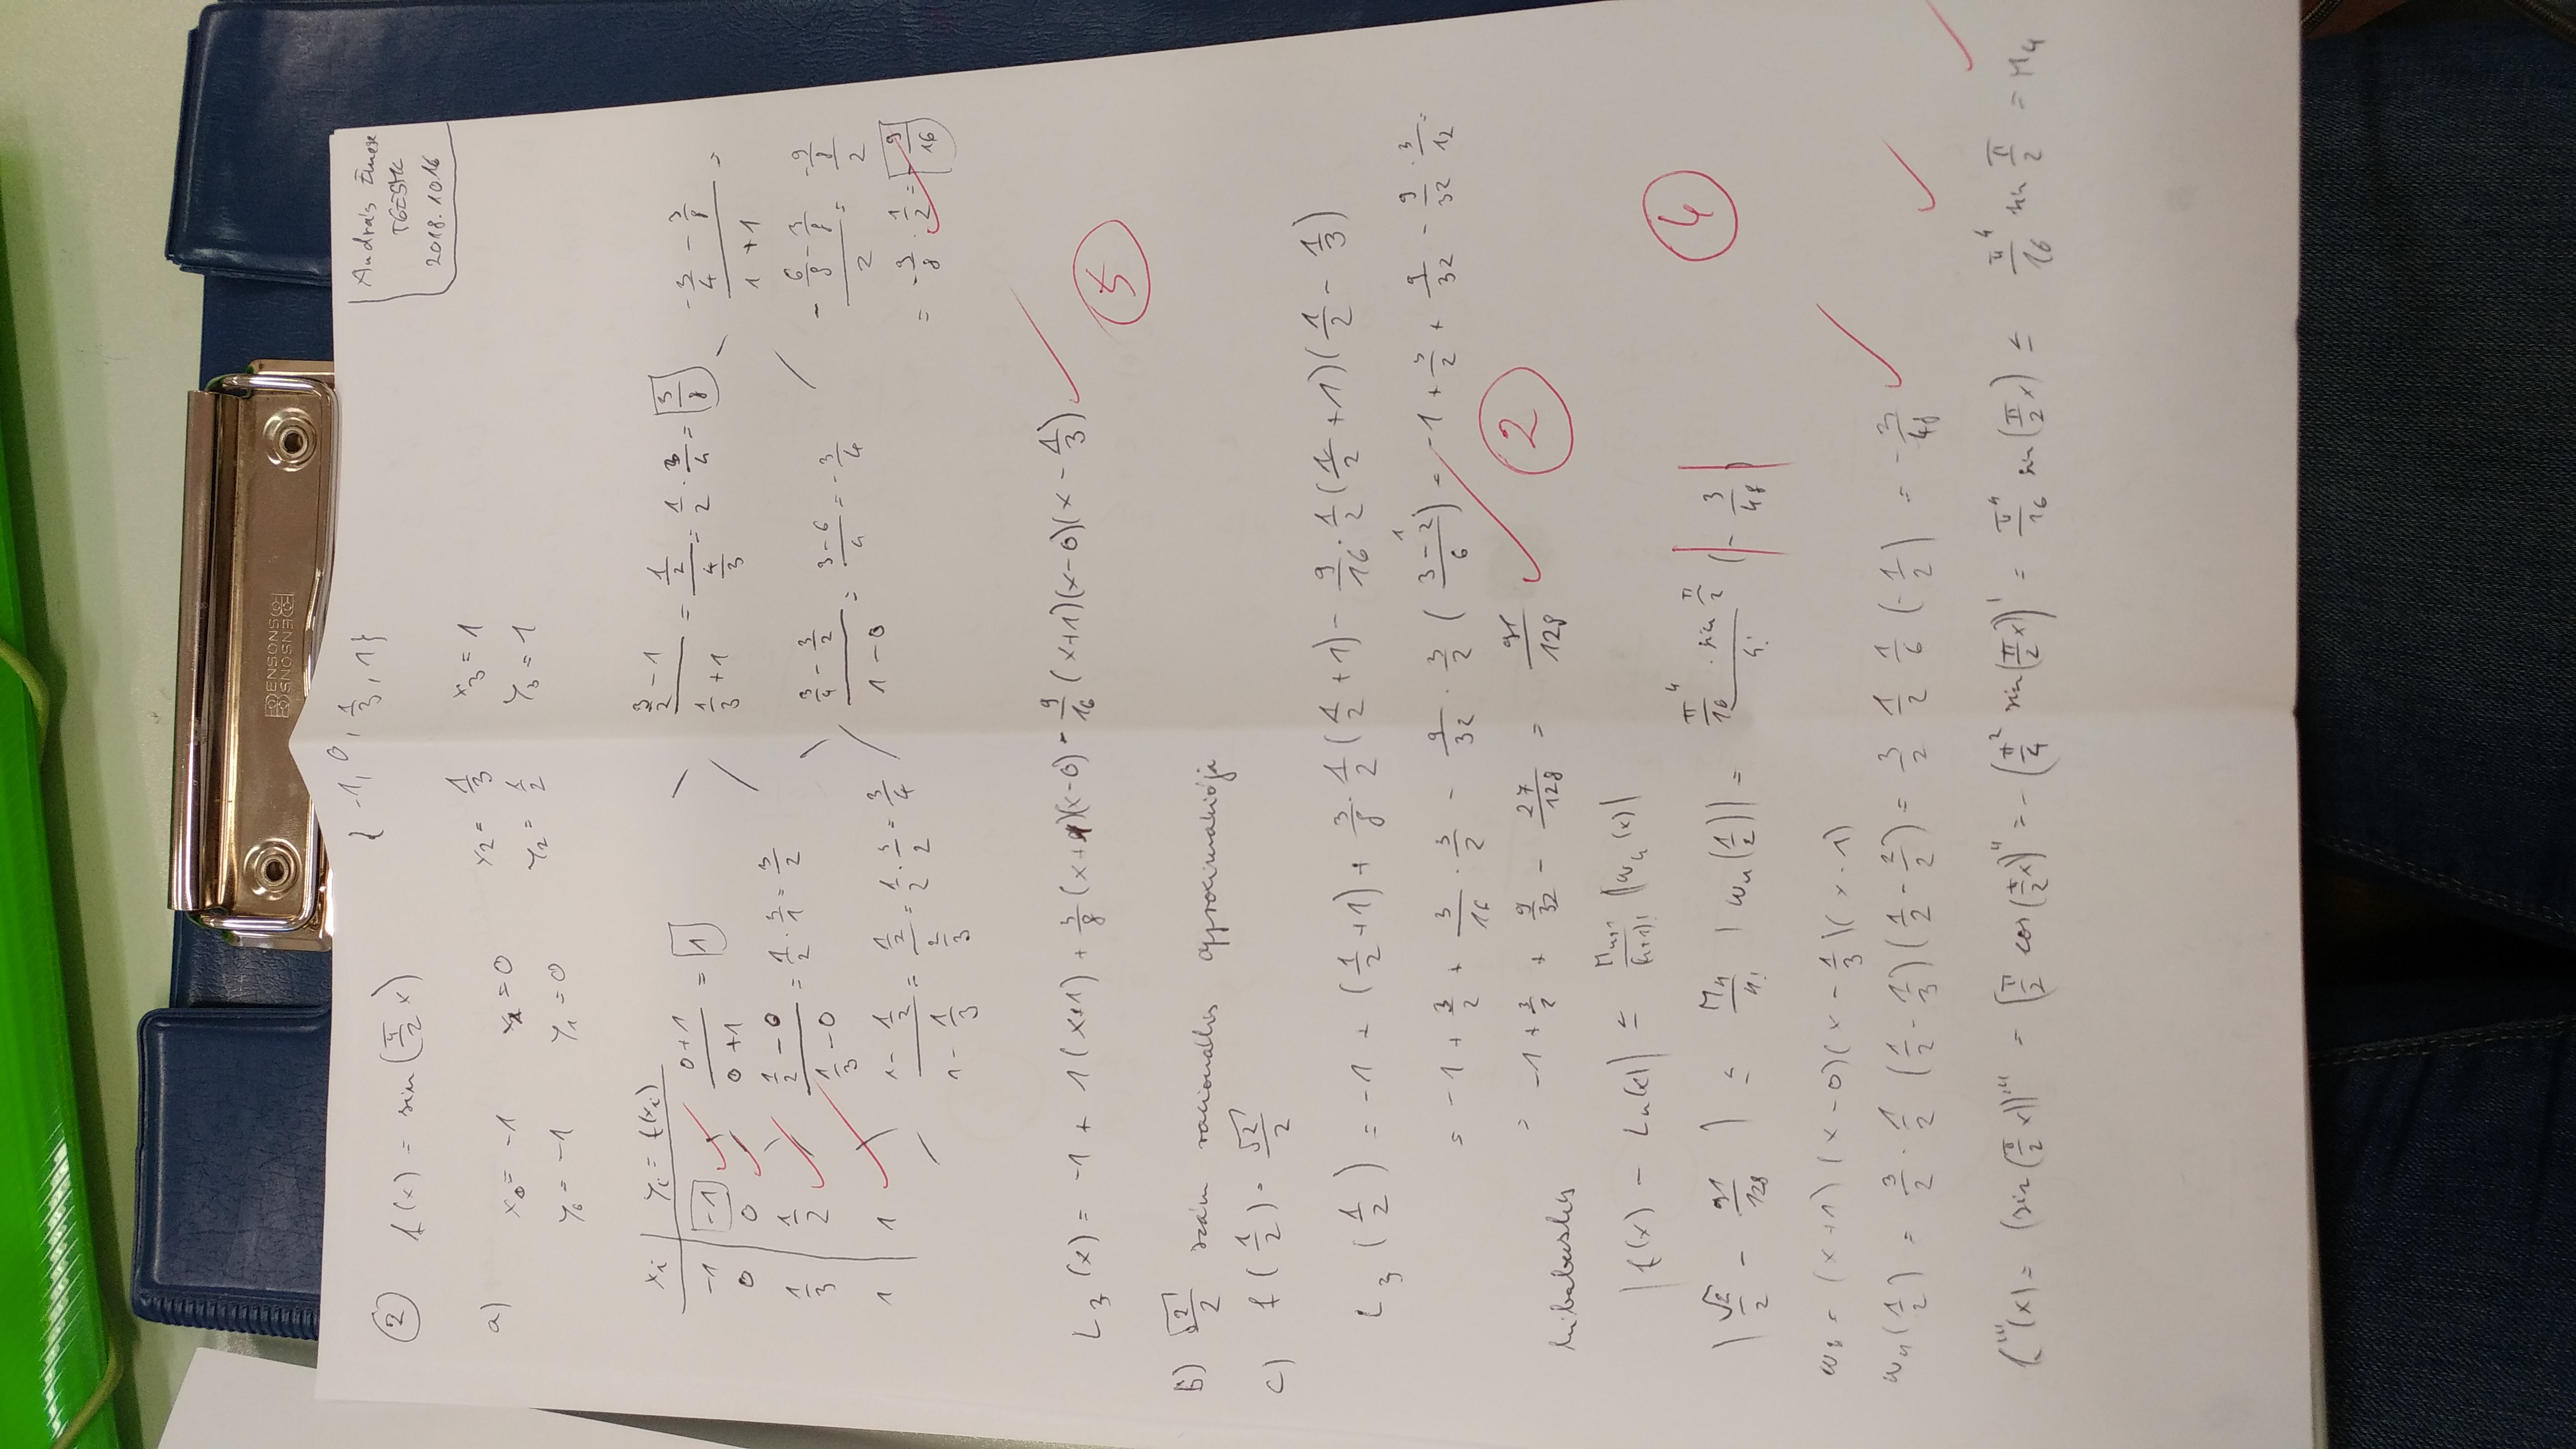 BENSONS
BENSONS
{ -1, 0, 1/3, 1}
András Emese
T6E5MK
2018.10.16
② f(x) = sin(π/2 x)
a) x₀ = -1 x₁ = 0 x₂ = 1/3 x₃ = 1
y₀ = -1 y₁ = 0 y₂ = 1/2 y₃ = 1
xᵢ | yᵢ = f(xᵢ)
-1 | -1 ✓ (0+1)/(0+1) = 1
0 | 0 ✓
1/3 | 1/2 ✓ (1/2 - 0)/(1/3 - 0) = 1/2 · 3/1 = 3/2
1 | 1 ✓ (1 - 1/2)/(1 - 1/3) = (1/2)/(2/3) = 1/2 · 3/2 = 3/4
(3/2 - 1)/(1/3 + 1) = (1/2)/(4/3) = 1/2 · 3/4 = 3/8
(3/4 - 3/2)/(1 - 0) = (3-6)/4 = -3/4
(-3/4 - 3/8)/(1 + 1) =
(-6/8 - 3/8)/2 = (-9/8)/2
= -9/8 · 1/2 = -9/16 ✓
L₃(x) = -1 + 1(x+1) + 3/8 (x+1)(x-0) - 9/16 (x+1)(x-0)(x - 1/3) ✓
5
b) √2/2 szám racionális approximációja
c) f(1/2) = √2/2
L₃(1/2) = -1 + (1/2 + 1) + 3/8 · 1/2 (1/2 + 1) - 9/16 · 1/2 (1/2 + 1)(1/2 - 1/3)
= -1 + 3/2 + 3/16 · 3/2 - 9/32 · 3/2 ((3-2)/6) = -1 + 3/2 + 9/32 - 9/32 · 3/12 =
= -1 + 3/2 + 9/32 - 27/128 = 91/128 ✓
2
hibabecslés
|f(x) - Lₙ(x)| ≤ Mₙ₊₁/(n+1)! |ωₙ(x)|
4
|√2/2 - 91/128| ≤ M₄/4! |ω₄(1/2)| = (π⁴/16 · sin π/2)/4! |- 3/48|
ω₃ = (x+1)(x-0)(x - 1/3)(x-1)
ω₄(1/2) = 3/2 · 1/2 (1/2 - 1/3)(1/2 - 2/2) = 3/2 1/2 1/6 (-1/2) = -3/48 ✓
f''''(x) = (sin(π/2 x))'''' = (π/2 cos(π/2 x))''' = -(π²/4 sin(π/2 x))' = π⁴/16 sin(π/2 x) ≤ π⁴/16 sin π/2 = M₄